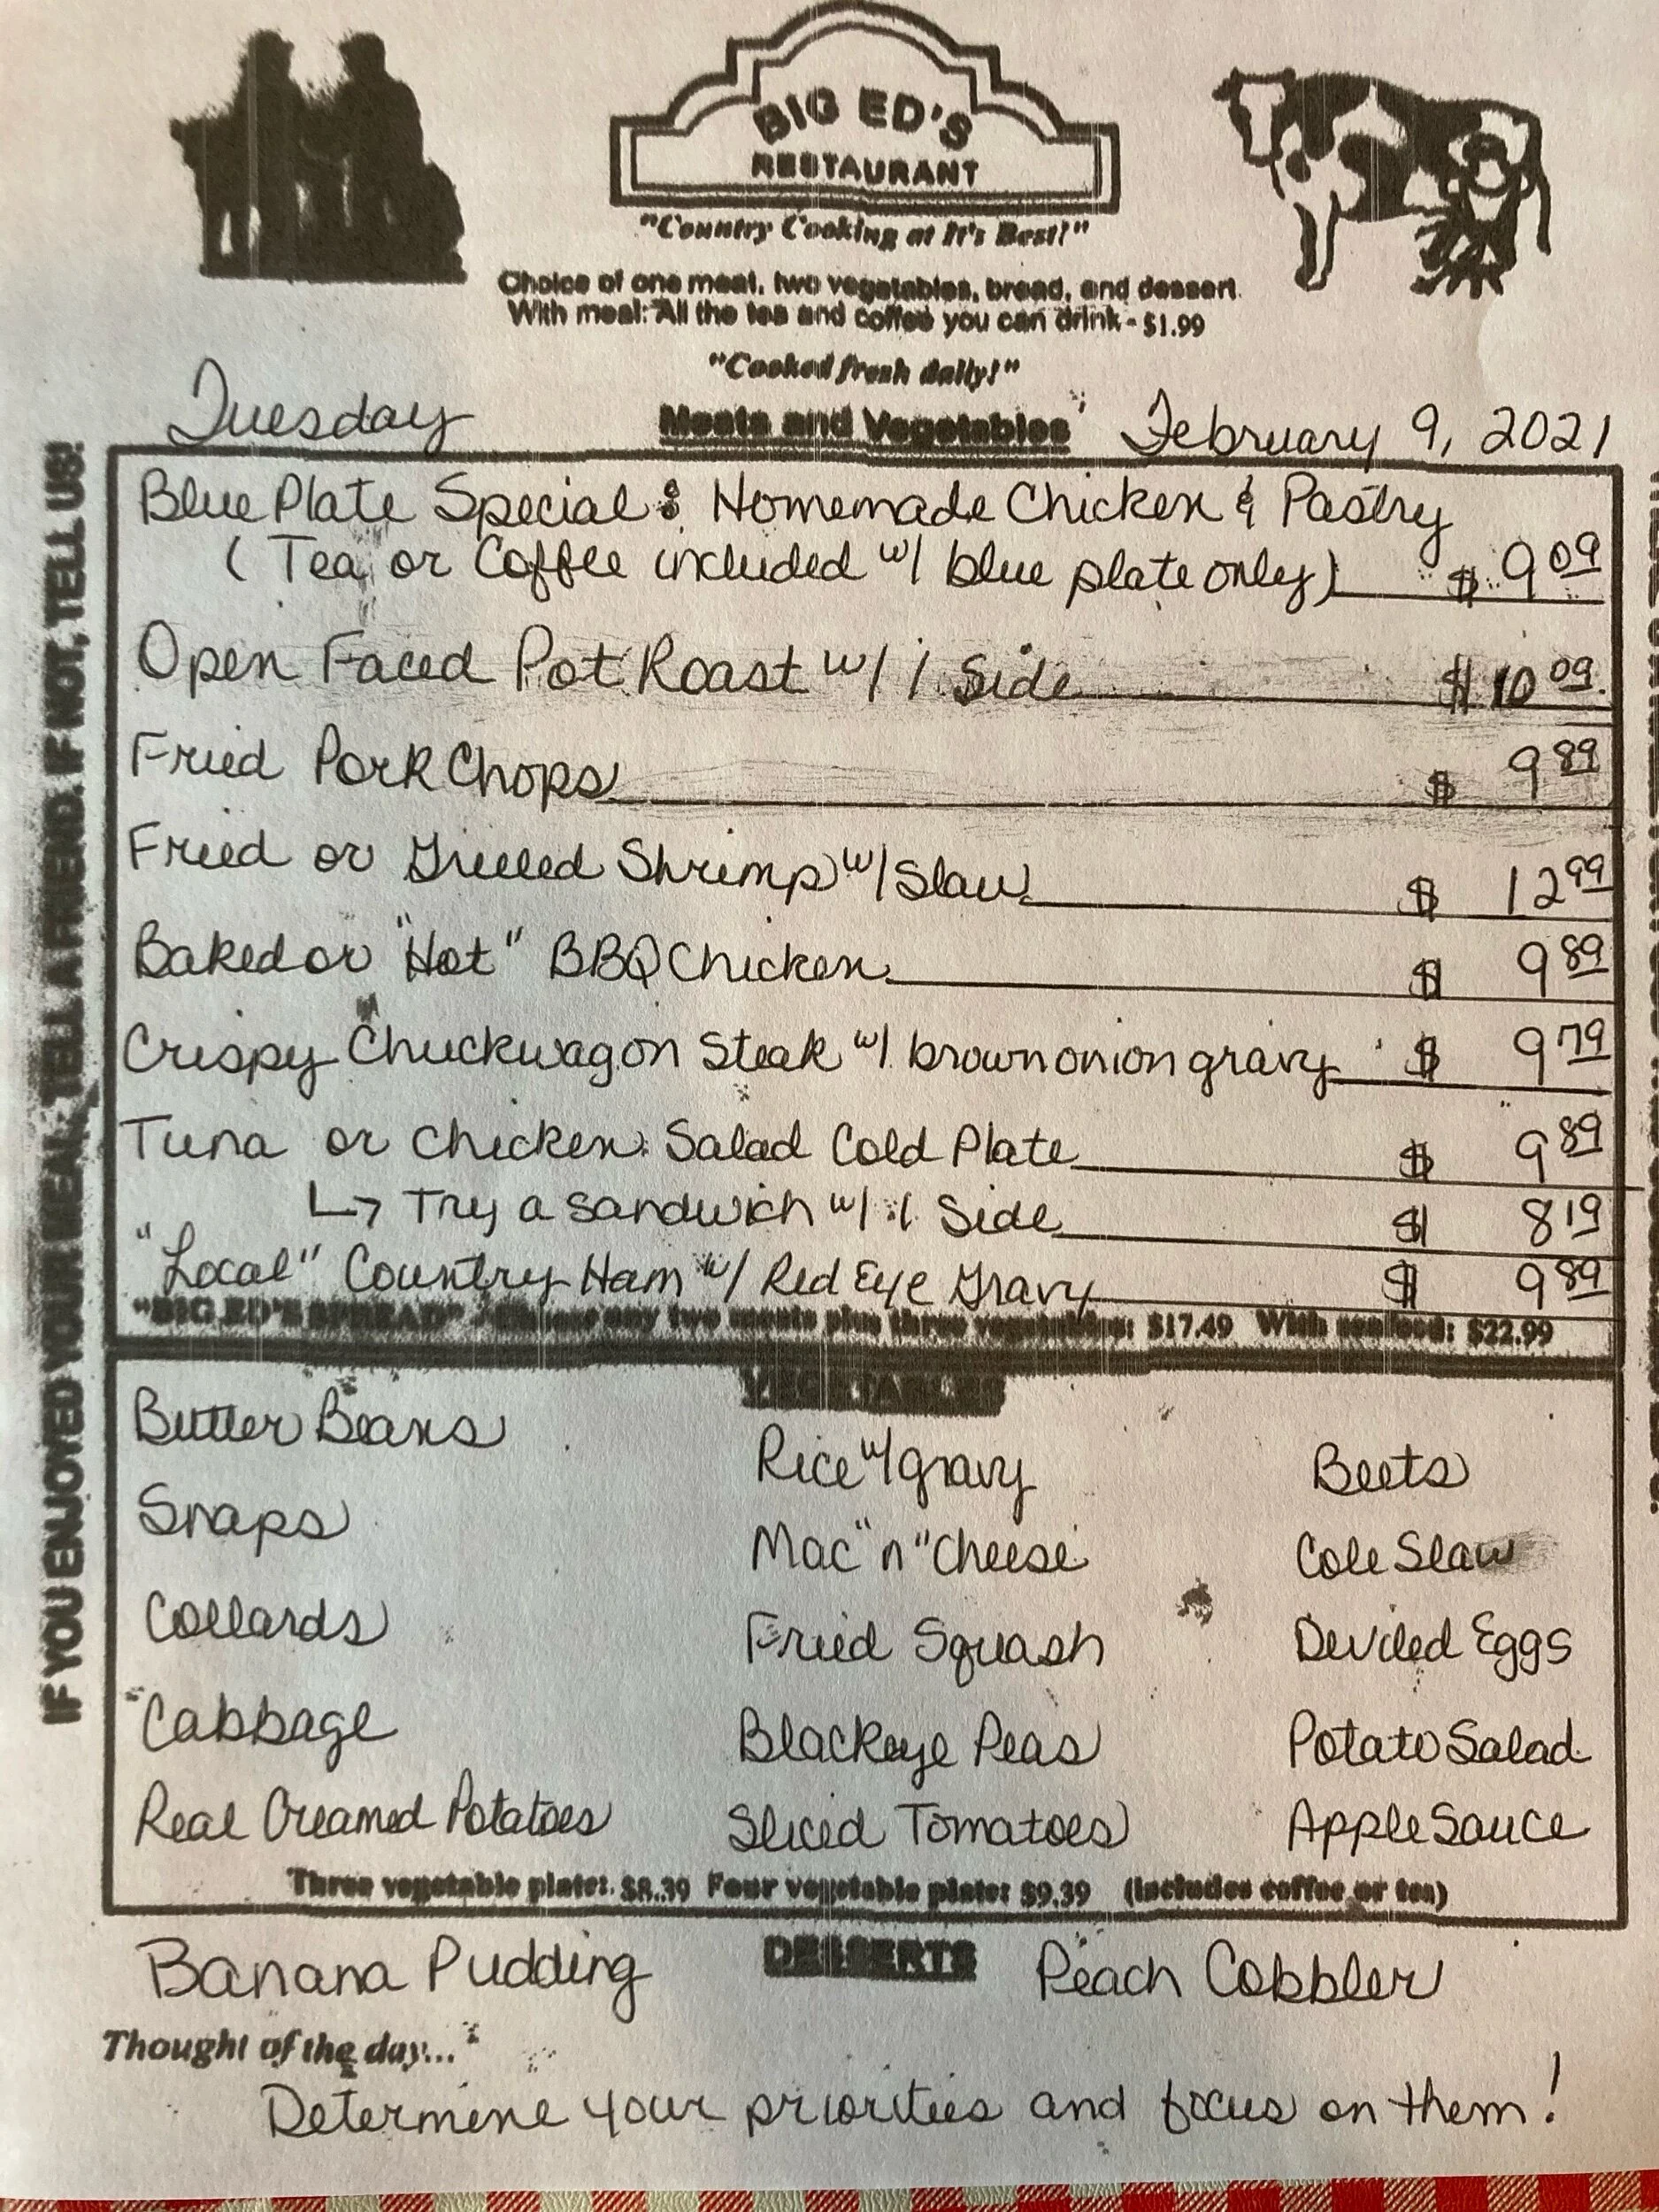 BIG ED'S
RESTAURANT
"Country Cooking at It's Best!"
Choice of one meat, two vegetables, bread, and dessert.
With meal: All the tea and coffee you can drink - $1.99
"Cooked fresh daily!"
Tuesday Meats and Vegetables February 9, 2021
Blue Plate Special: Homemade Chicken & Pastry
(Tea or Coffee included w/ blue plate only) $ 9.09
Open Faced Pot Roast w/ 1 Side $ 10.09
Fried Pork Chops $ 9.89
Fried or Grilled Shrimp w/ Slaw $ 12.99
Baked or "Hot" BBQ Chicken $ 9.89
Crispy Chuckwagon Steak w/ brown onion gravy $ 9.79
Tuna or Chicken Salad Cold Plate $ 9.89
↳ Try a sandwich w/ 1 Side $ 8.19
"Local" Country Ham w/ Red Eye Gravy $ 9.89
"BIG ED'S SPREAD" - Choose any two meats plus three vegetables: $17.49 With seafood: $22.99
VEGETABLES
Butter Beans Rice w/ gravy Beets
Snaps Mac "n" Cheese Cole Slaw
Collards Fried Squash Deviled Eggs
Cabbage Blackeye Peas Potato Salad
Real Creamed Potatoes Sliced Tomatoes Apple Sauce
Three vegetable plate: $8.39 Four vegetable plate: $9.39 (Includes coffee or tea)
Banana Pudding DESSERTS Peach Cobbler
Thought of the day...
Determine your priorities and focus on them!
IF YOU ENJOYED YOUR MEAL, TELL A FRIEND. IF NOT, TELL US!